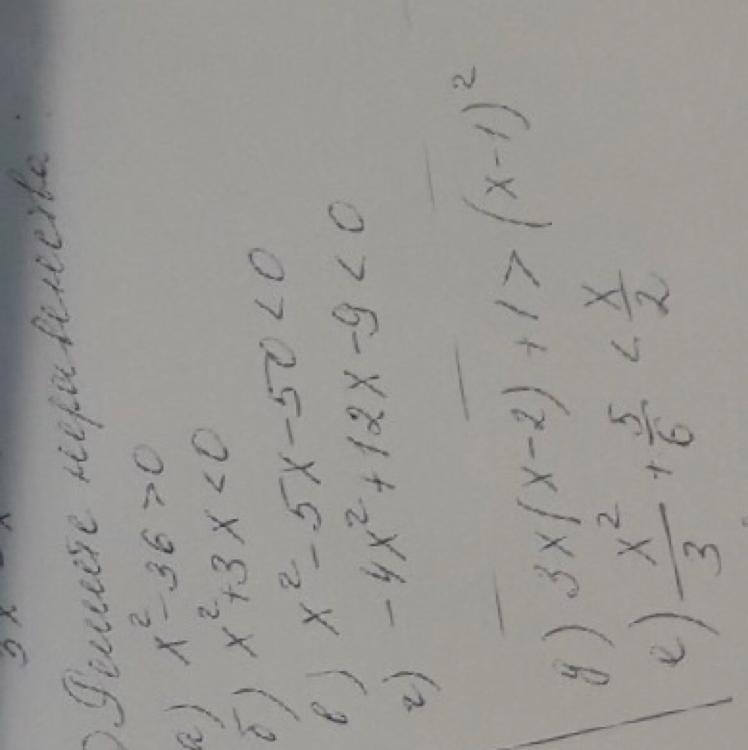 Решите неравенства
а) x² - 36 > 0
б) x² + 3x < 0
в) x² - 5x - 50 < 0
г) -4x² + 12x - 9 < 0
д) 3x(x - 2) + 1 > (x - 1)²
е) x²/3 + 5/6 < x/2